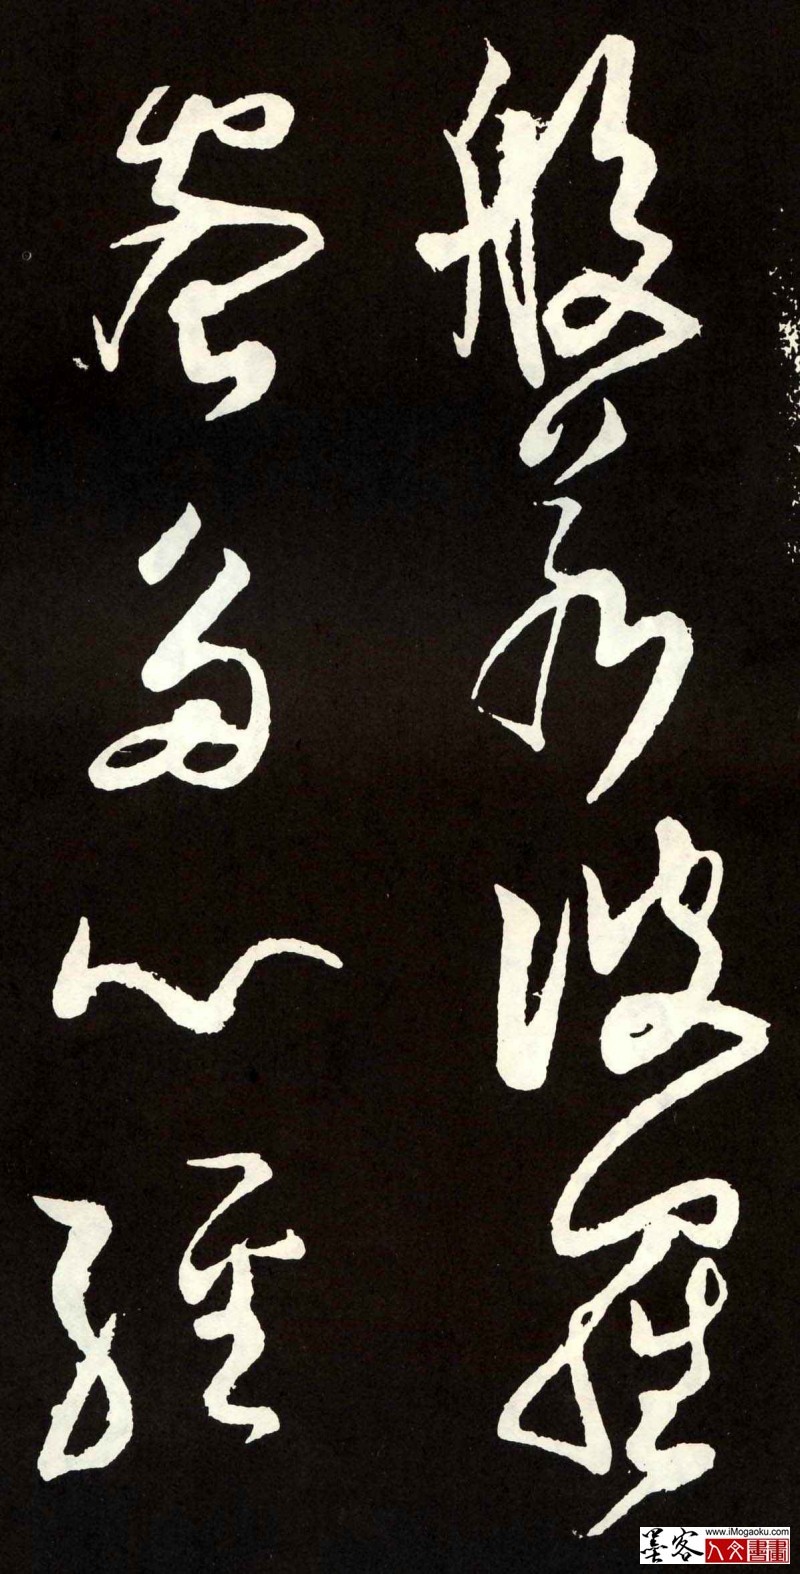 般若波羅
蜜多心經
墨客
www.iMogaoku.com
人文書畫